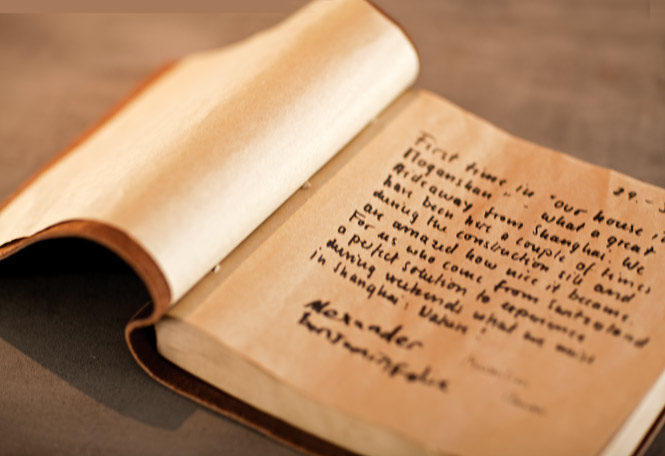 29.-
First time in "our house i
Moganshan - - what a great
Hideaway from Shanghai. We
have been here a couple of times
during the construction still and
are amazed how nice it became.
For us who come from Switzerland
a perfect solution to experience
during weekends what we miss
in Shanghai: Nature!
Alexander